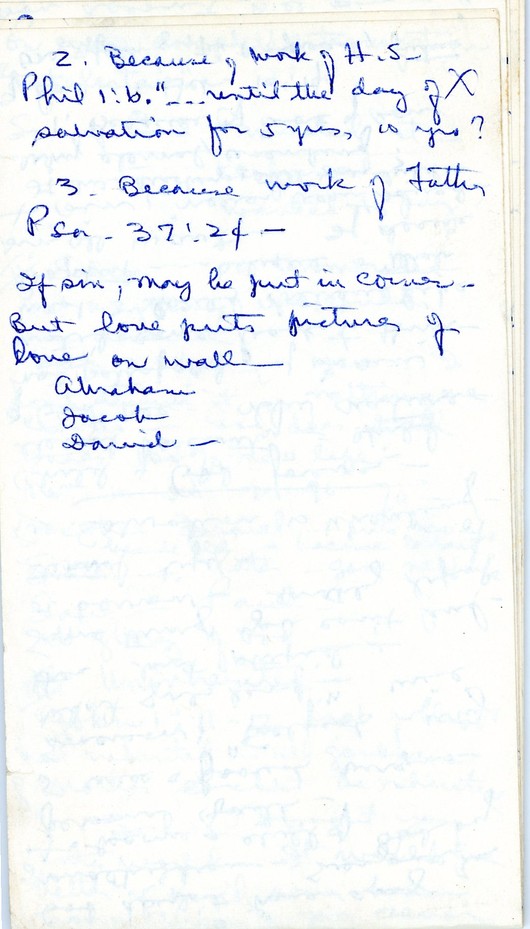 2. Because of work of H.S-
Phil 1:6. "---until the day of X
salvation for 5 yrs, 10 yrs?
3. Because work of Father
Psa - 37:24 -
If sin, may be put in corner -
But love puts pictures of
love on wall -
Abraham
Jacob
David -